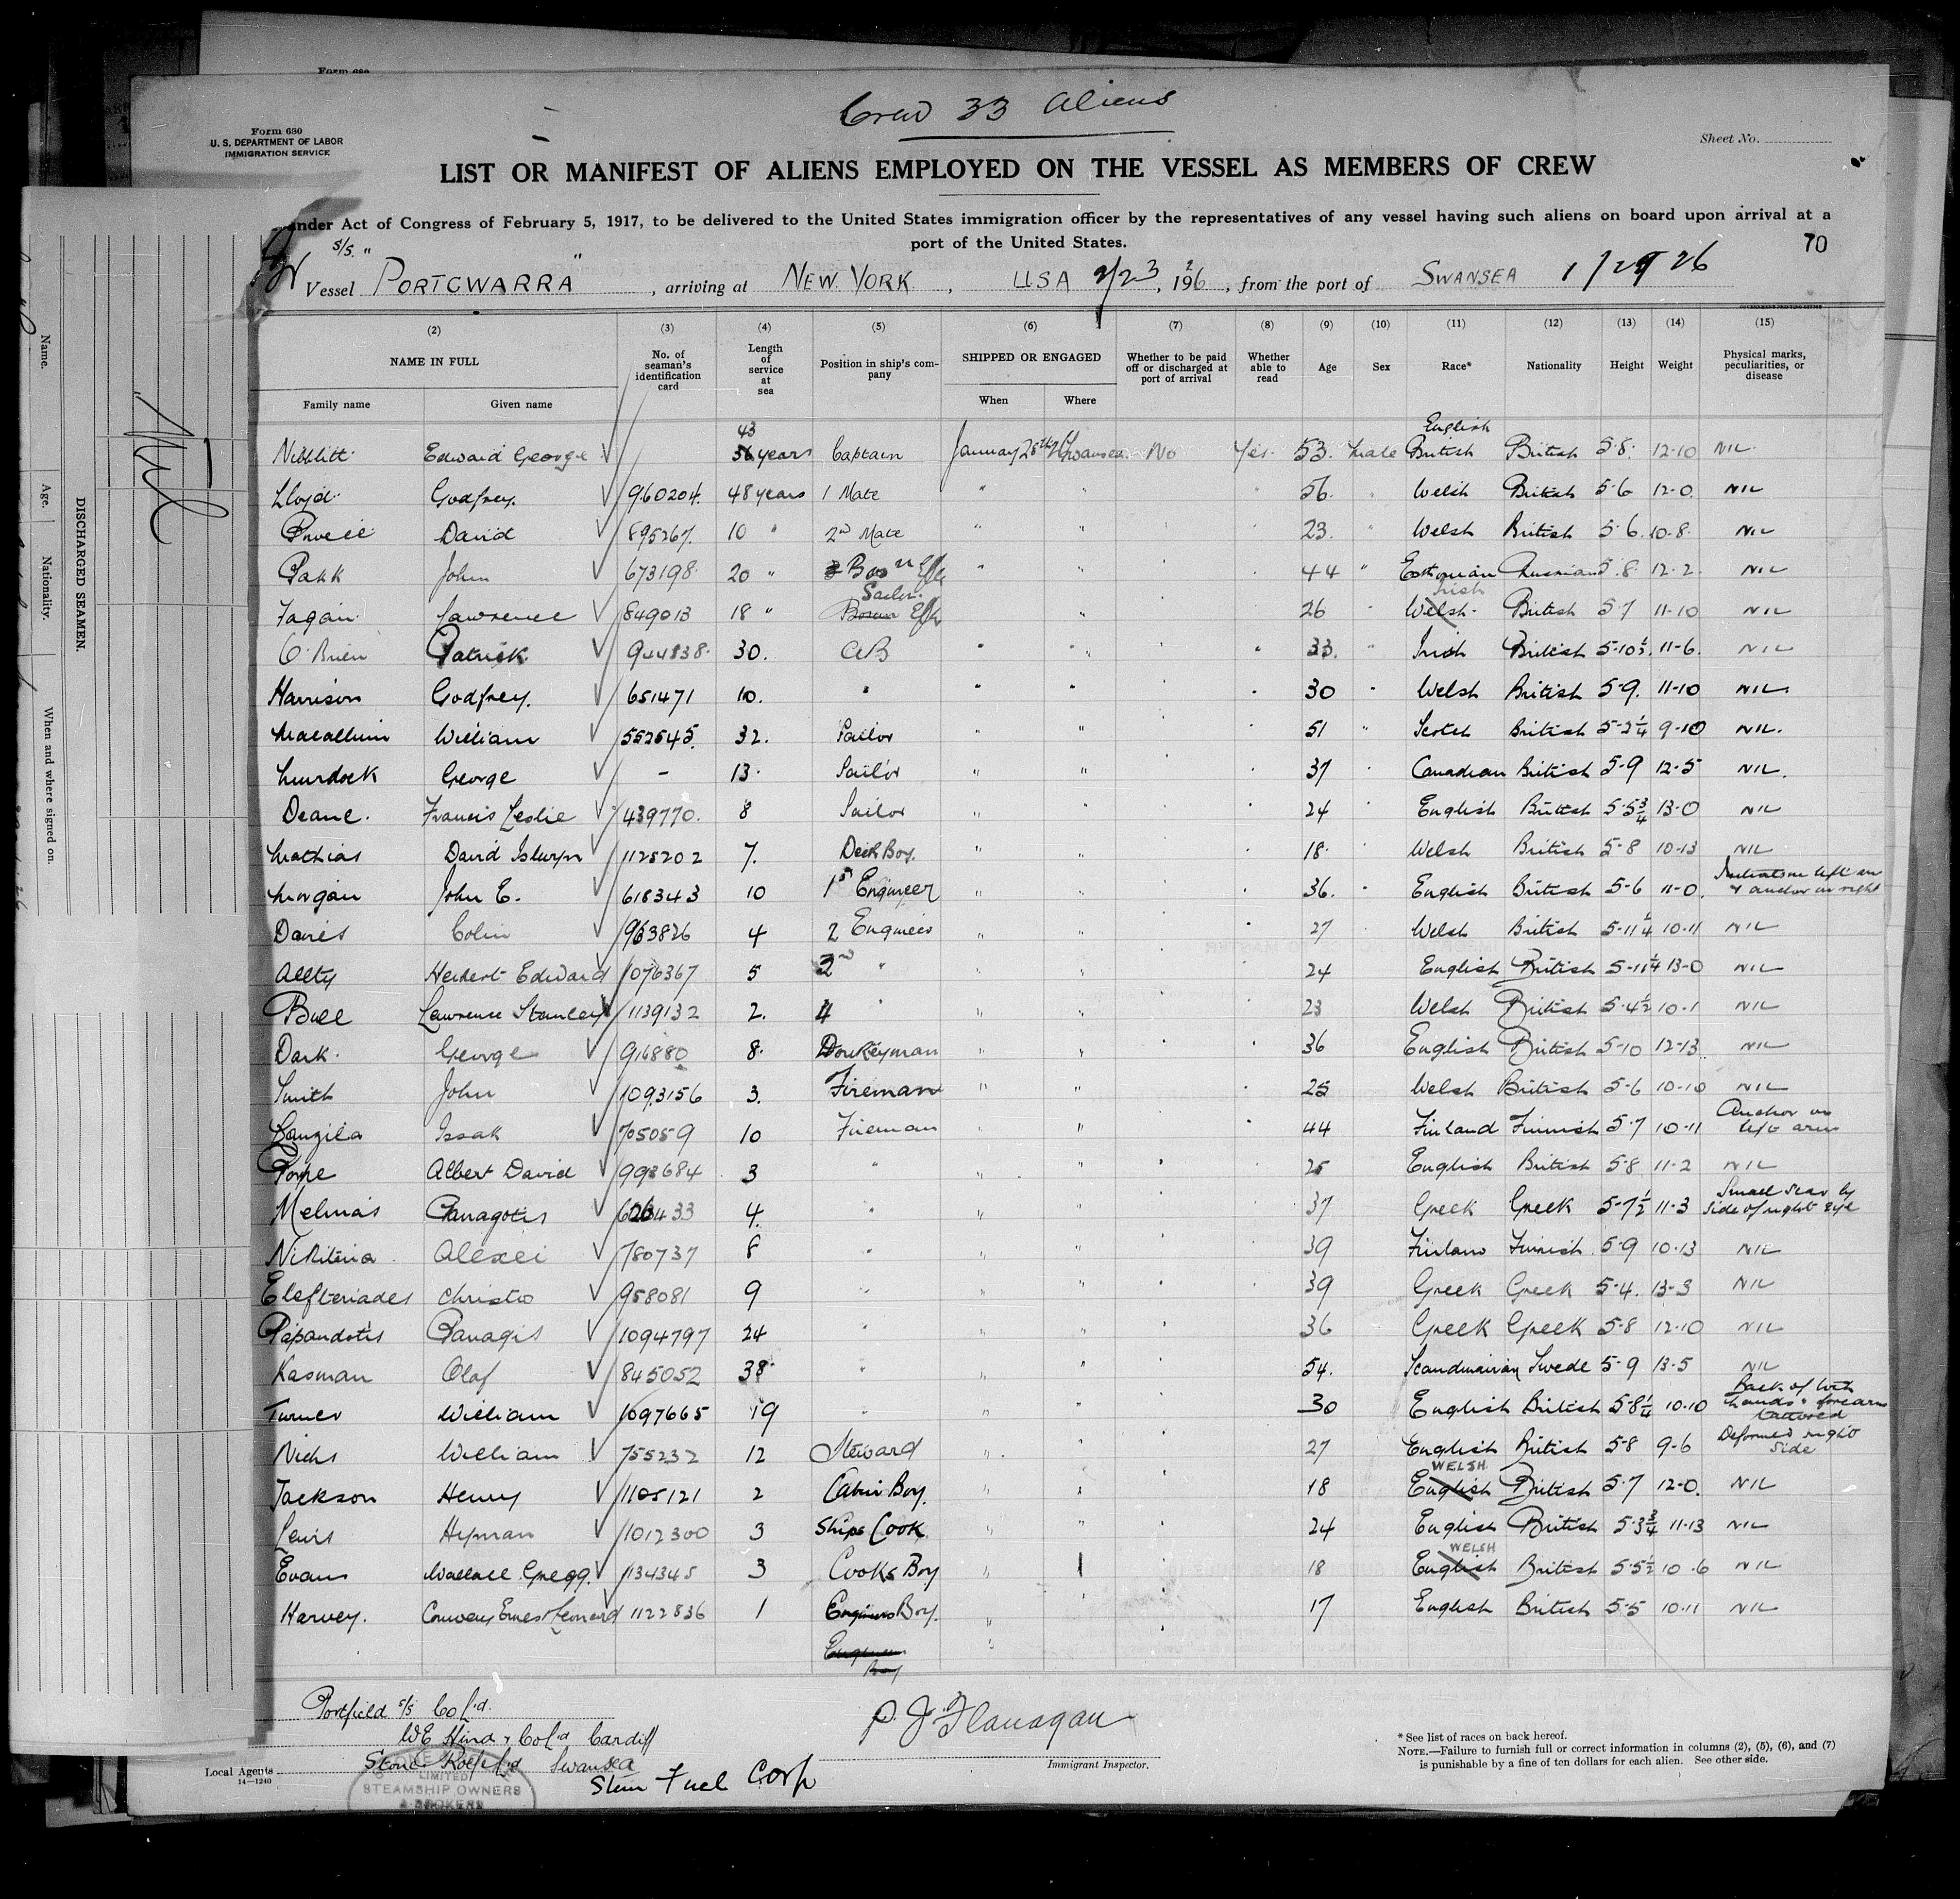 Crew 33 Aliens
Form 680
U. S. DEPARTMENT OF LABOR
IMMIGRATION SERVICE
Sheet No.
LIST OR MANIFEST OF ALIENS EMPLOYED ON THE VESSEL AS MEMBERS OF CREW
under Act of Congress of February 5, 1917, to be delivered to the United States immigration officer by the representatives of any vessel having such aliens on board upon arrival at a
port of the United States.
70
Vessel S/S. "PORTGWARRA", arriving at NEW YORK, USA 2/23, 1926, from the port of SWANSEA 1/29 26
(2) (3) (4) (5) (6) (7) (8) (9) (10) (11) (12) (13) (14) (15)
NAME IN FULL No. of seaman's identification card Length of service at sea Position in ship's company SHIPPED OR ENGAGED Whether to be paid off or discharged at port of arrival Whether able to read Age Sex Race* Nationality Height Weight Physical marks, peculiarities, or disease
Family name Given name When Where
Niblitt Edward George 43 years Captain January 28th Swansea No Yes 53 Male English British British 5-8 12-10 NIL
Lloyd Godfrey 960204 48 years 1 Mate " " 56 " Welsh British 5-6 12-0 NIL
Powell David 895267 10 " 2nd Mate " " 23 " Welsh British 5-6 10-8 NIL
Pakk John 673198 20 " Bosn " " 44 " Esthonian Russian 5-8 12-2 NIL
Fagan Lawrence 849013 18 " Sailor Bosun " 26 " Irish Welsh British 5-7 11-10 NIL
O'Brien Patrick 944838 30 AB " " 33 " Irish British 5-10½ 11-6 NIL
Harrison Godfrey 651471 10 " " " 30 " Welsh British 5-9 11-10 NIL
Macallum William 552545 32 Sailor " " 51 " Scotch British 5-2¼ 9-10 NIL
Murdock George - 13 Sailor " " 37 " Canadian British 5-9 12-5 NIL
Deane Francis Leslie 439770 8 Sailor " " 24 English British 5-5¾ 13-0 NIL
Mathias David Islwyn 1125202 7 Deck Boy " " 18 Welsh British 5-8 10-13 NIL
Morgan John E. 618343 10 1st Engineer " " 36 English British 5-6 11-0 left arm & anchor on right
Davies Colin 963826 4 2 Engineer " " 27 Welsh British 5-11¼ 10-11 NIL
Allty Herbert Edward 1076367 5 " " " 24 English British 5-11¼ 13-0 NIL
Bull Lawrence Stanley 1139132 2 4 " " " 23 Welsh British 5-4½ 10-1 NIL
Dark George 916880 8 Donkeyman " " 36 English British 5-10 12-13 NIL
Smith John 1093156 3 Fireman " " 25 Welsh British 5-6 10-10 NIL
Issak 705059 10 Fireman " " 44 Finland Finnish 5-7 10-11 Anchor on left arm
Pope Albert David 993684 3 " " " 25 English British 5-8 11-2 NIL
Melinas Panagotis 626433 4 " " " 37 Greek Greek 5-7½ 11-3 Small scar by side of right eye
Nikitina Alexei 780737 8 " " " 39 Finland Finnish 5-9 10-13 NIL
Elefteriades Christo 958081 9 " " 39 Greek Greek 5-4 13-3 NIL
Papandotis Panagis 1094797 24 " " " 36 Greek Greek 5-8 12-10 NIL
Kasman Olaf 845052 38 " " " 54 Scandinavian Swede 5-9 13-5 NIL
Turner William 1097665 19 " " " 30 English British 5-8¼ 10-10 Back of both hands & forearms tattooed
William 755232 12 Steward " " 27 English British 5-8 9-6 Deformed right side
Jackson Henry 1105121 2 Cabin Boy " " 18 WELSH English British 5-7 12-0 NIL
Lewis Hyman 1012300 3 Ships Cook " " 24 English British 5-3¾ 11-13 NIL
Evans Wallace Gregg 1134345 3 Cooks Boy " 18 WELSH English British 5-5½ 10-6 NIL
Harvey Conway Ernest Leonard 1122836 1 Engineers Boy " " 17 English British 5-5 10-11 NIL
Boy "
Portfield S/S Co Ld.
WE Hind & Co Ld Cardiff
Swansea
Stone
LIMITED
STEAMSHIP OWNERS
& BROKERS
Fuel Corp
Local Agents
14—1240
P. J. Flanagan
Immigrant Inspector.
* See list of races on back hereof.
NOTE.—Failure to furnish full or correct information in columns (2), (5), (6), and (7)
is punishable by a fine of ten dollars for each alien. See other side.
DISCHARGED SEAMEN.
Name.
Age.
Nationality.
When and where signed on.
Form 680